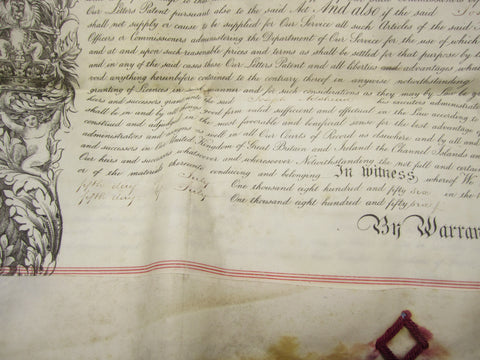 Our Letters Patent pursuant also to the said Act And also if the said
shall not supply or cause to be supplied for Our Service all such Articles of the said
Officers or Commissioners administering the Department of Our Service for the use of which
and at and upon such reasonable prices and terms as shall be settled for that purpose by
and in any of the said cases these Our Letters Patent and all liberties and advantages
void anything hereinbefore contained to the contrary thereof in anywise notwithstanding
granting of licences in such manner and for such considerations as they may by Law be
heirs and successors grant the said Joseph his executors administrators
shall be in and by all good firm valid sufficient and effectual in the Law according to
construed and adjudged in the most favorable and beneficial sense for the best advantage of
administrators and assigns as well in all Our Courts of Record as elsewhere and by all and
and successors in the United Kingdom of Great Britain and Ireland the Channel Islands and
Our heirs and successors whatsoever and wheresoever Notwithstanding the not full and certain
or of the materials thereunto conducing and belonging In witness, whereof We
fifth day of July One thousand eight hundred and fifty six in the
fifth day of July One thousand eight hundred and fifty six
By Warran